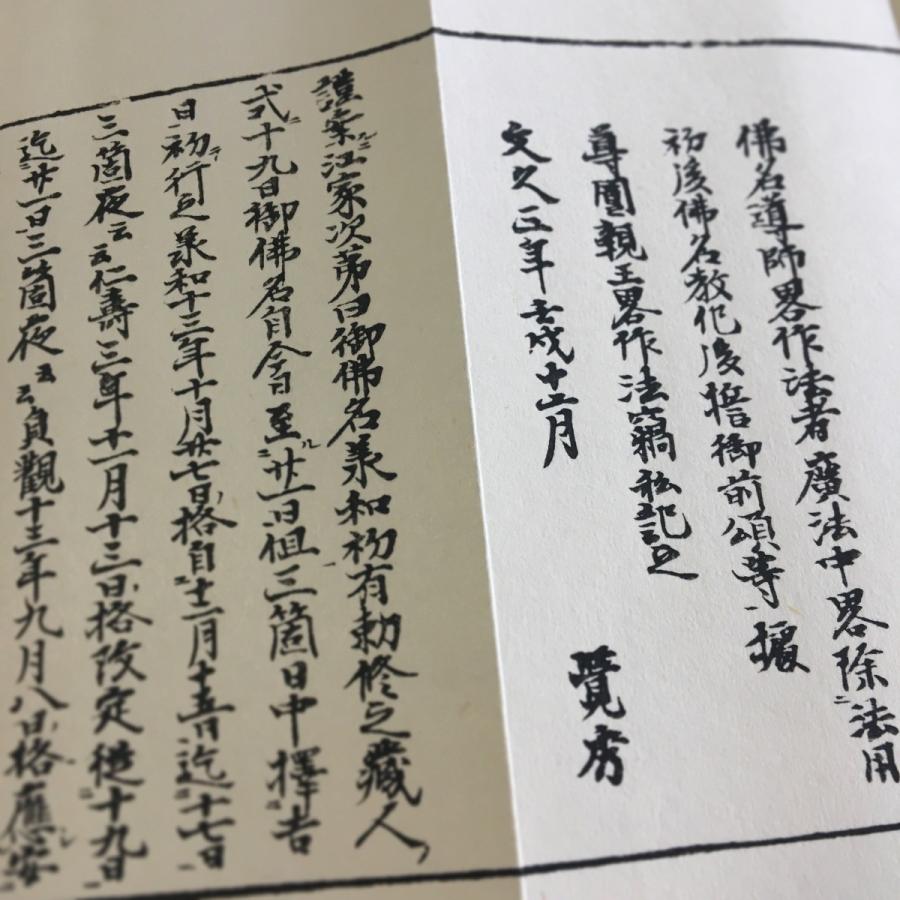 佛名導師畧作法者廣法中畧除ニ法用
初後佛名教化後誓御前頌等一攘
尊圓親王畧作法窩私記之
文久二年壬戌十二月
覚秀
謹案ルニ江家次第曰御佛名承和初有勅修之藏人
式ニ十九日御佛名自今日至ルニ廿一日但三箇日中擇吉
日初テ行之承和十三年十月廿七日格自十二月十五日迄十七日
三箇夜云云仁壽三年十一月十三日格改定從十九日
迄廿一日三箇夜云云貞觀十三年九月八日格應安